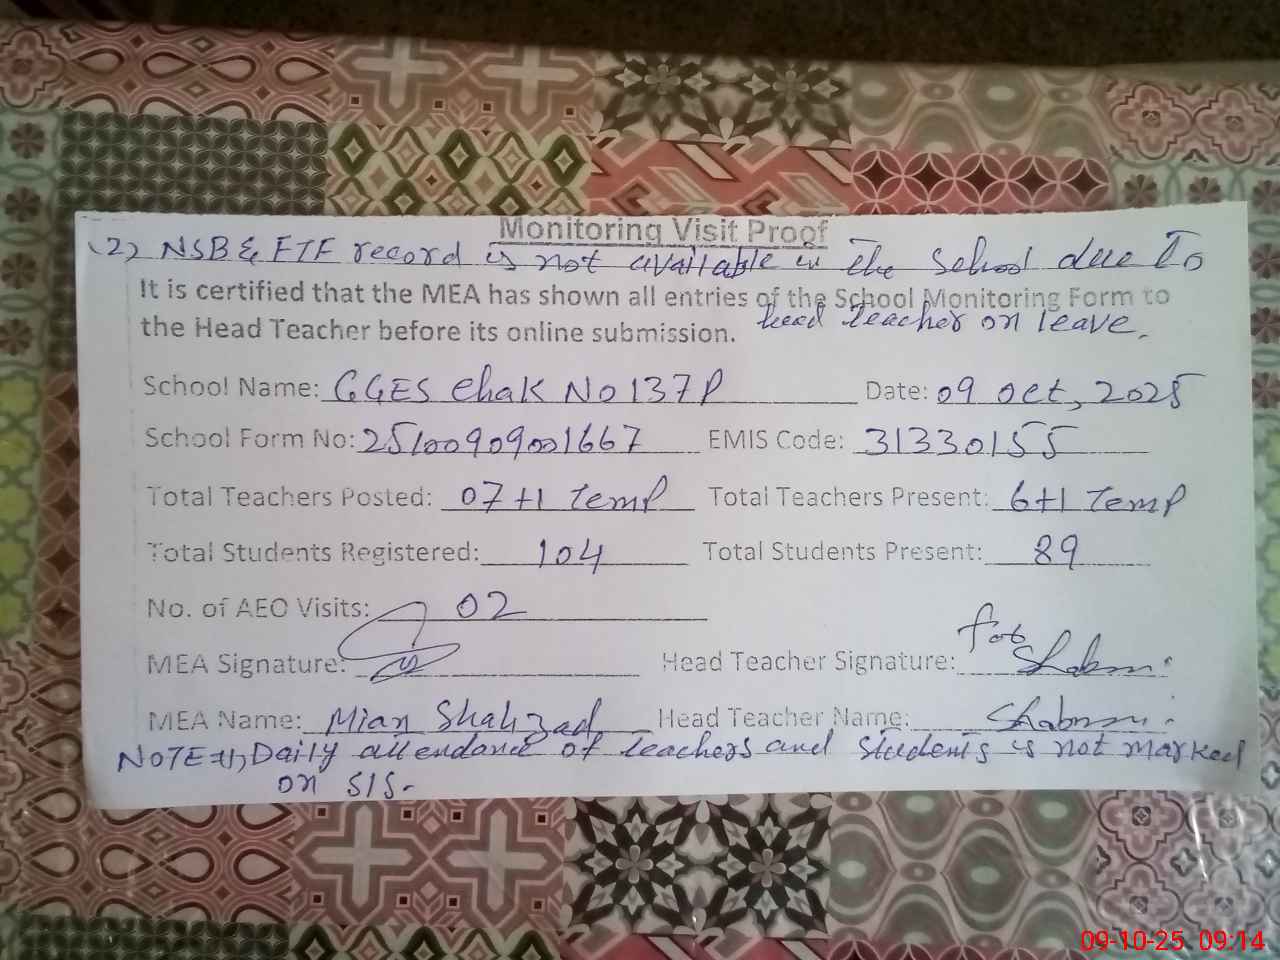 Monitoring Visit Proof
(2) NSB & FTF record is not available in the school due to
It is certified that the MEA has shown all entries of the School Monitoring Form to
head teacher on leave.
the Head Teacher before its online submission.
School Name: GGES Chak No 137P Date: 09 Oct, 2025
School Form No: 25100909001667 EMIS Code: 31330155
Total Teachers Posted: 07+1 Temp Total Teachers Present: 6+1 Temp
Total Students Registered: 104 Total Students Present: 89
No. of AEO Visits: 02
for
MEA Signature: Head Teacher Signature:
MEA Name: Mian Shahzad Head Teacher Name:
NOTE=(1) Daily attendance of teachers and students is not marked
on SIS.
09-10-25 09:14